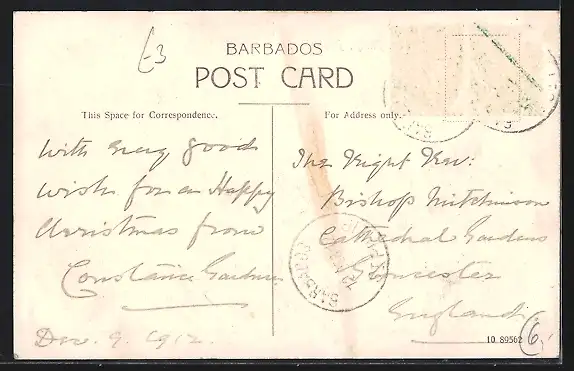 £3
BARBADOS
POST CARD
This Space for Correspondence.
For Address only.
With every good
wish for a Happy
Christmas from
Constance Gardner
Dec. 9. 1912.
The Right Rev:
Bishop Mitchinson
Cathedral Gardens
Gloucester
England
BARBADOS
10 89562
6.